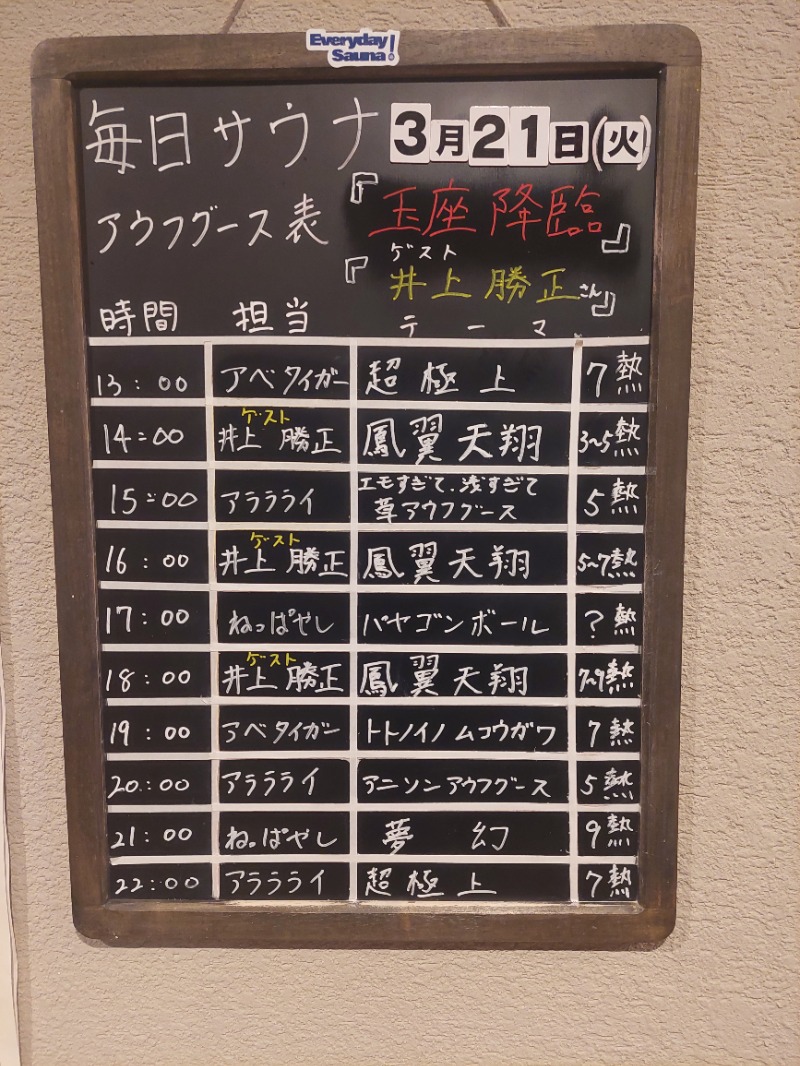 Everyday
Sauna!
毎日サウナ 3月21日(火)
アウフグース表 『玉座降臨』
ゲスト
『井上勝正さん』
時間 担当 テーマ
13:00 アベタイガー 超極上 7熱
ゲスト
14:00 井上勝正 鳳翼天翔 3~5熱
15:00 アラララライ エモすぎて、浅すぎて 5熱
草アウフグース
ゲスト
16:00 井上勝正 鳳翼天翔 5~7熱
17:00 ねっぱやし パヤゴンボール ?熱
ゲスト
18:00 井上勝正 鳳翼天翔 7~9熱
19:00 アベタイガー トトノイノムコウガワ 7熱
20:00 アラララライ アニソンアウフグース 5熱
21:00 ねっぱやし 夢幻 9熱
22:00 アラララライ 超極上 7熱